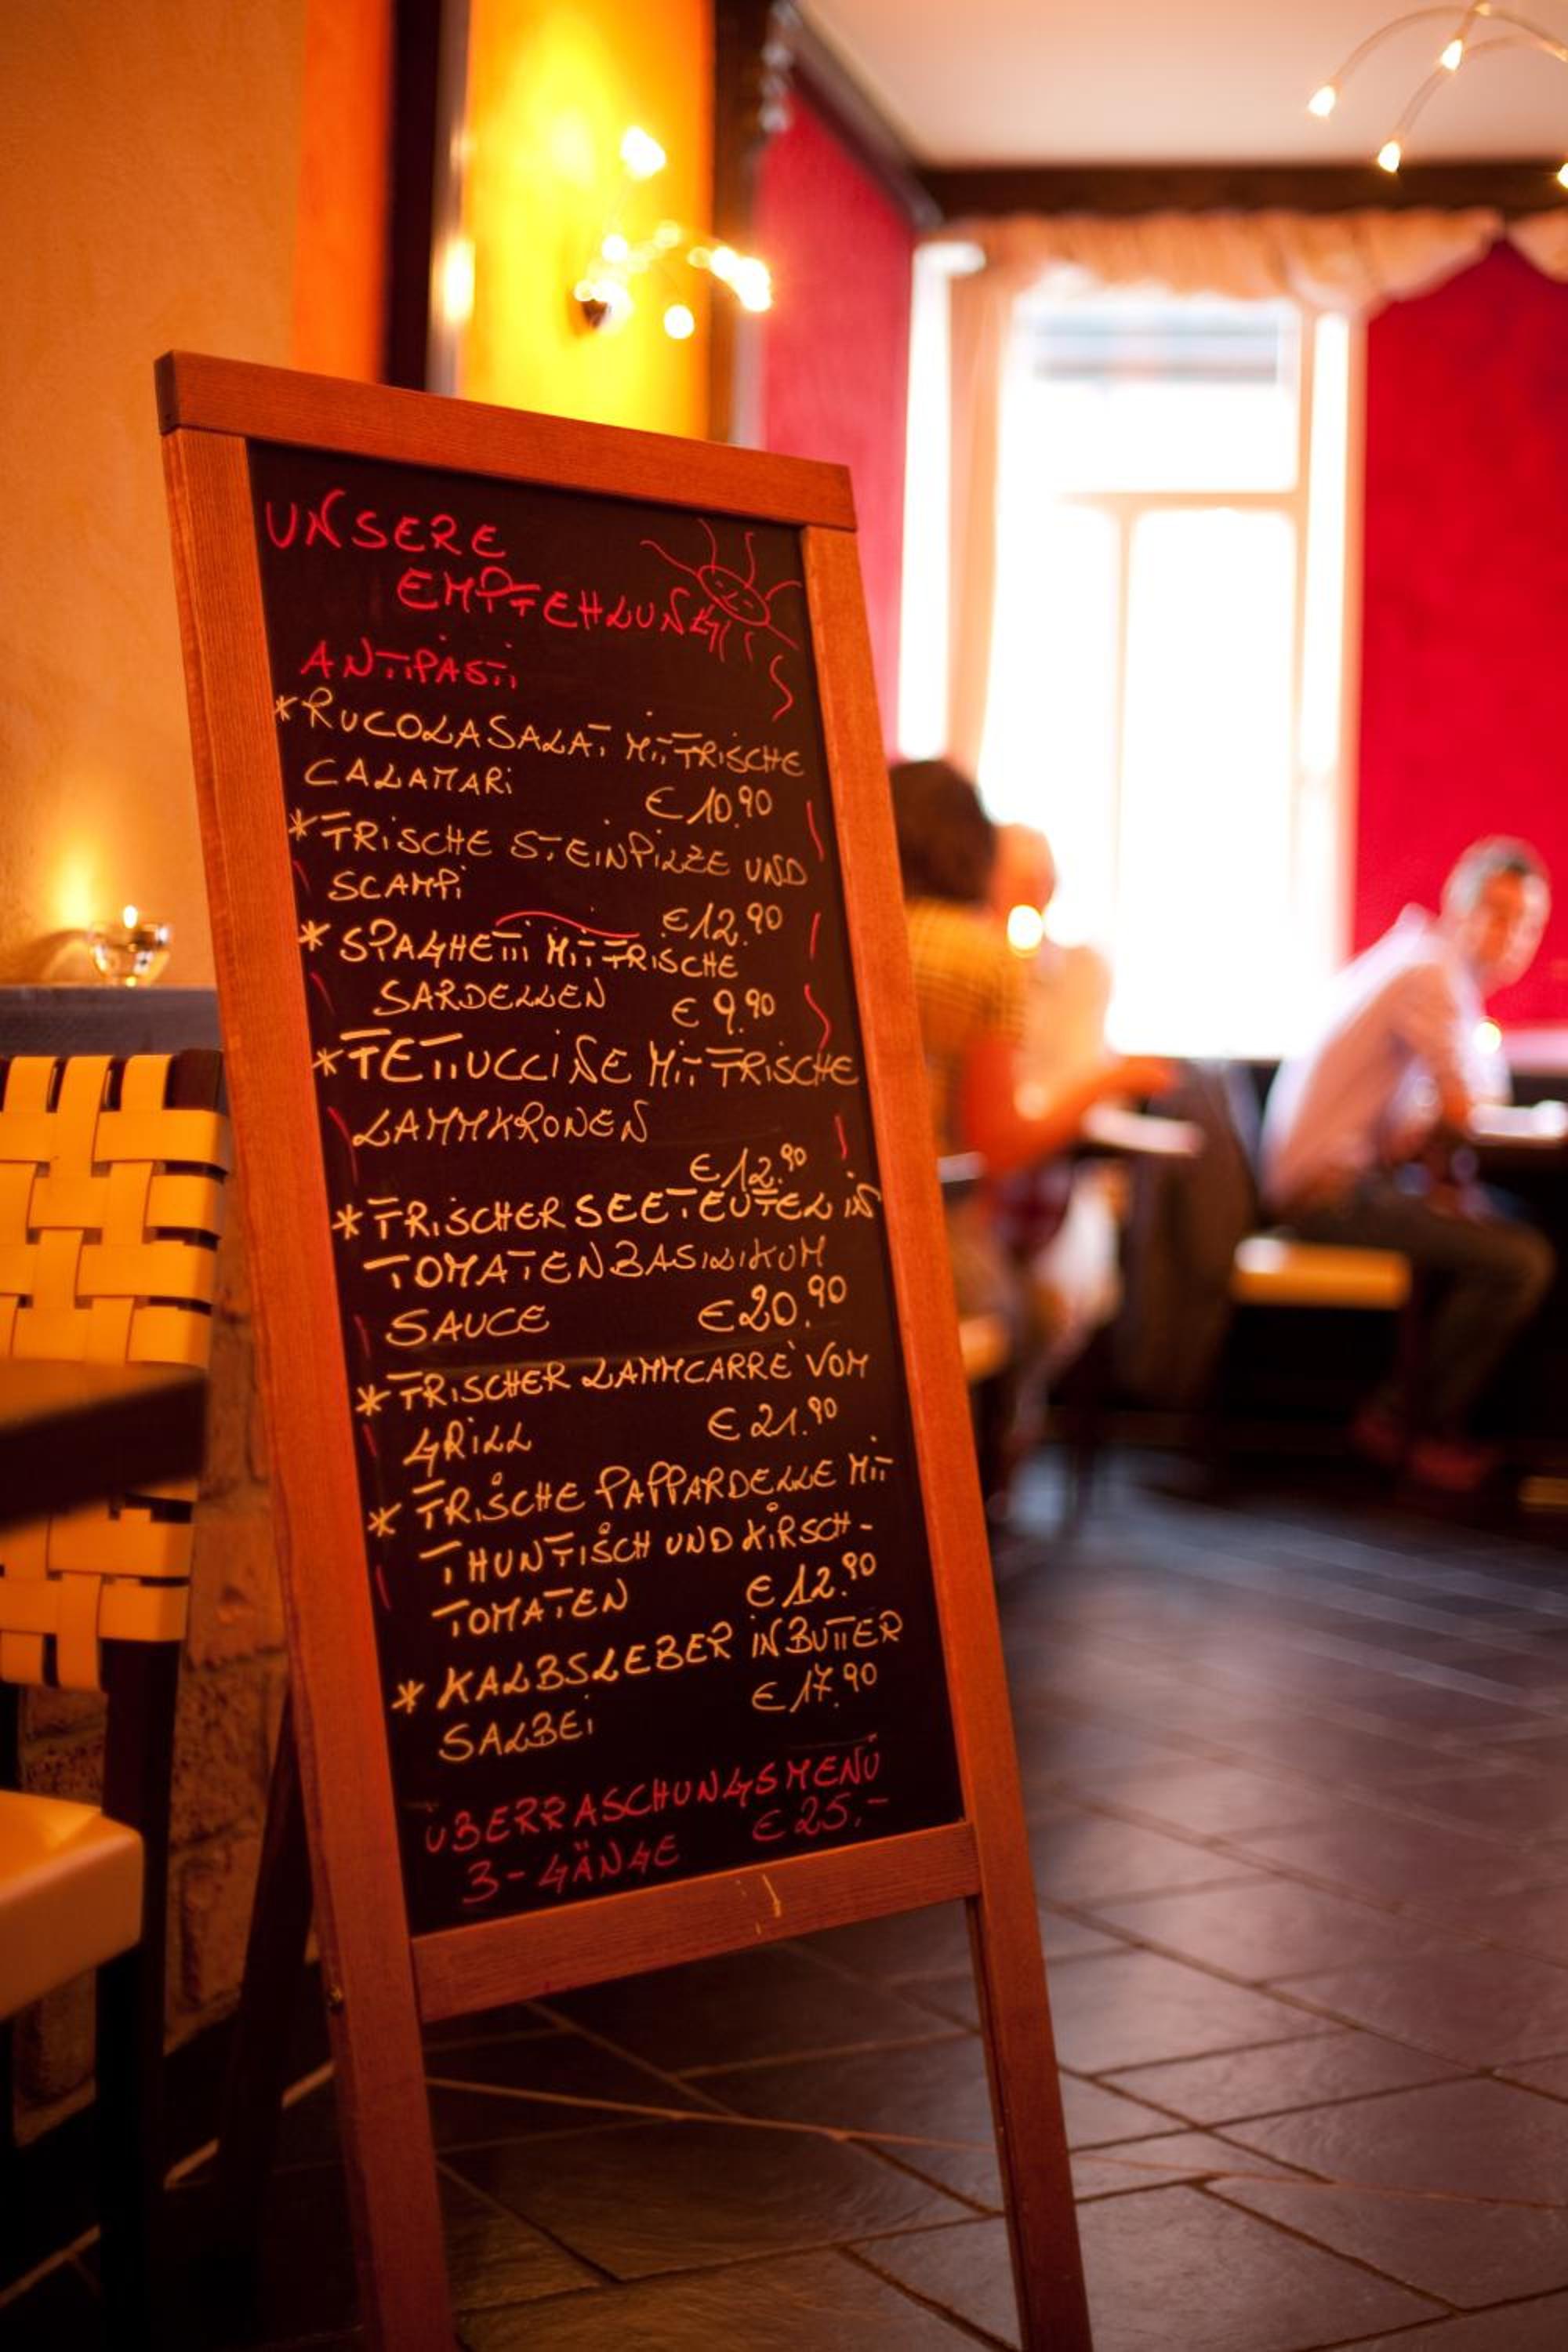 UNSERE
EMPFEHLUNG
ANTIPASTI
* RUCOLASALAT MIT FRISCHE
CALAMARI
€ 10.90
* FRISCHE STEINPILZE UND
SCAMPI
€ 12.90
* SPAGHETTI MIT FRISCHE
SARDELLEN € 9.90
* FETTUCCINE MIT FRISCHE
LAMMKRONEN
€ 12.90
* FRISCHER SEETEUFEL IN
TOMATENBASILIKUM
SAUCE € 20.90
* FRISCHER LAMMCARRÈ VOM
GRILL € 21.90
* FRISCHE PAPPARDELLE MIT
THUNFISCH UND KIRSCH-
TOMATEN € 12.90
* KALBSLEBER IN BUTTER
SALBEI € 17.90
ÜBERRASCHUNGSMENÜ
3-GÄNGE € 25.-